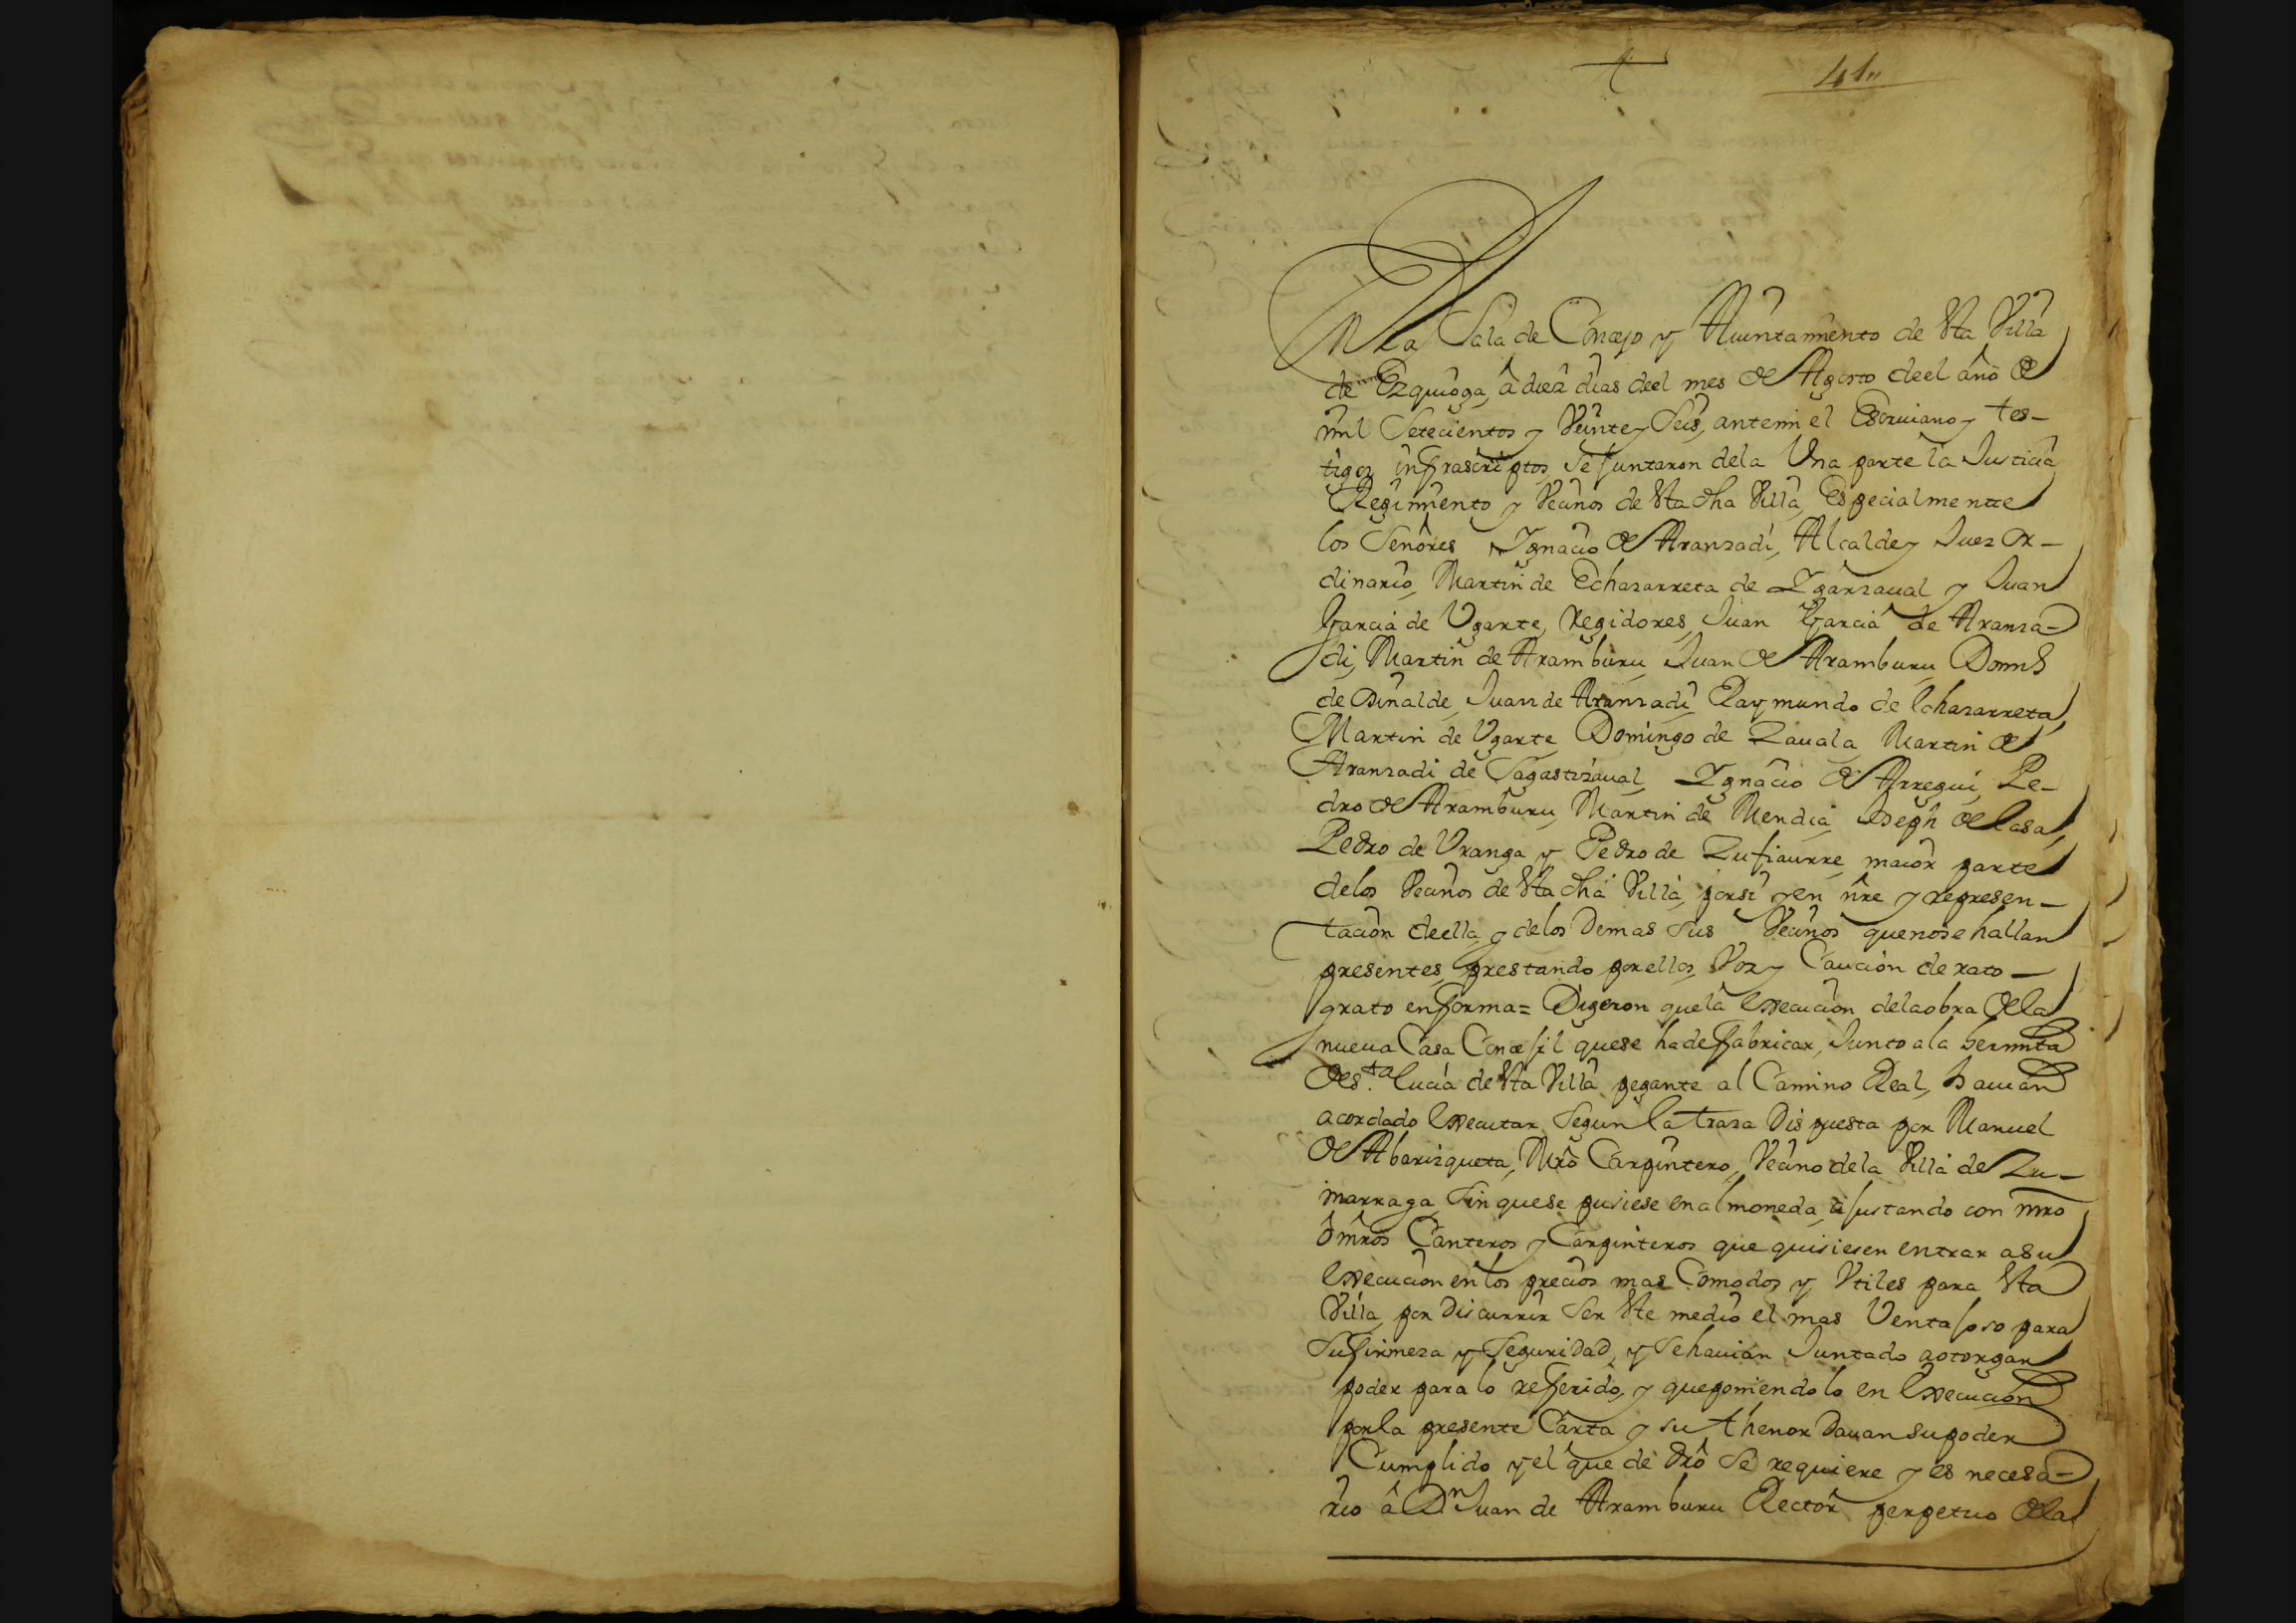 41
En La Sala de Concejo y Aiuntamiento de esta Villa
de Ezquioga, â diez dias deel mes de Agosto deel año de
mil Setecientos y Veinte y Seis, antemi el Escriuano y tes-
tigos infrascriptos, Se juntaron dela Una parte la Justicia
Regimiento y Vecinos de esta dha Villa, Especialmente
los Señores Ygnacio de Aranzadi, Alcalde y Juez or-
dinario, Martin de Echazarreta de Ygarzaual y Juan
Garcia de Ugarte, Regidores, Juan Garcia de Aranza-
di, Martin de Aramburu, Juan de Aramburu, Doming
de Oinalde, Juan de Aranzadi, Raymundo de Echazarreta,
Martin de Ugarte, Domingo de Zauala, Martin de
Aranzadi de Sagastizaual, Ygnacio de Arregui, Pe-
dro de Aramburu, Martin de Mendia, Joseph de lasa,
Pedro de Uranga y Pedro de Zufiaurre, maior parte
delos Vecinos de esta dha Villa, porsi y en nre y represen-
tacion deella, y delos Demas sus Vecinos quenose hallan
presentes, prestando porellos, Voz y Caucion de rato-
grato enforma= Digeron quela execucion delaobra dela
nueua Casa Concejil quese hadefabricar, Junto ala hermita
de S.ta lucia de esta Villa pegante al Camino Real, hauian
acordado executar Segun la traza Dispuesta por Manuel
de Abarizqueta, Mrô Carpintero, Vecino dela Villa de Zu-
marraga, Sin quese pusiese en almoneda, ajustando con mro
ô mrôs Canteros y Carpinteros que quisiesen entrar asu
execucion en los precios mas Comodos y Utiles para esta
Villa, por Discurrir Ser este medio el mas Ventajoso para
Sufirmeza y Seguridad, y Sehauian Juntado aotorgar
poder para lo referido, y queponiendolo en execucion
porla presente Carta y su thenor Dauan supoder
Cumplido y el que de drô Se requiere y es necesa-
rio â Dn Juan de Aramburu Rector perpetuo dela